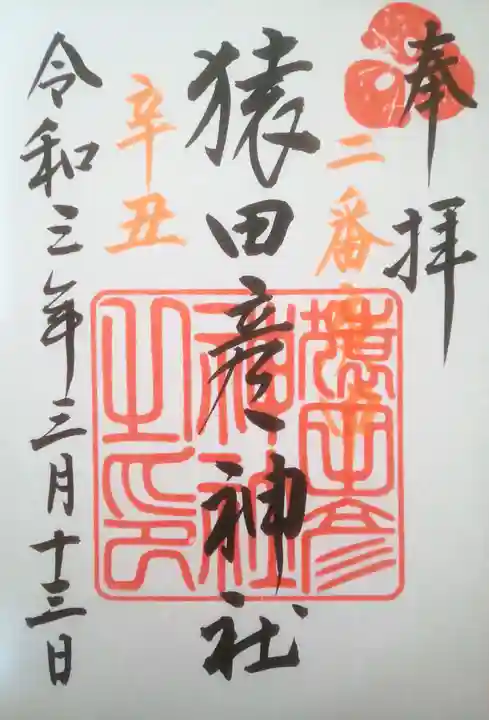 奉拝
二番
猿田彦神社
辛丑
令和三年三月十三日
猿田彦
神社
之印